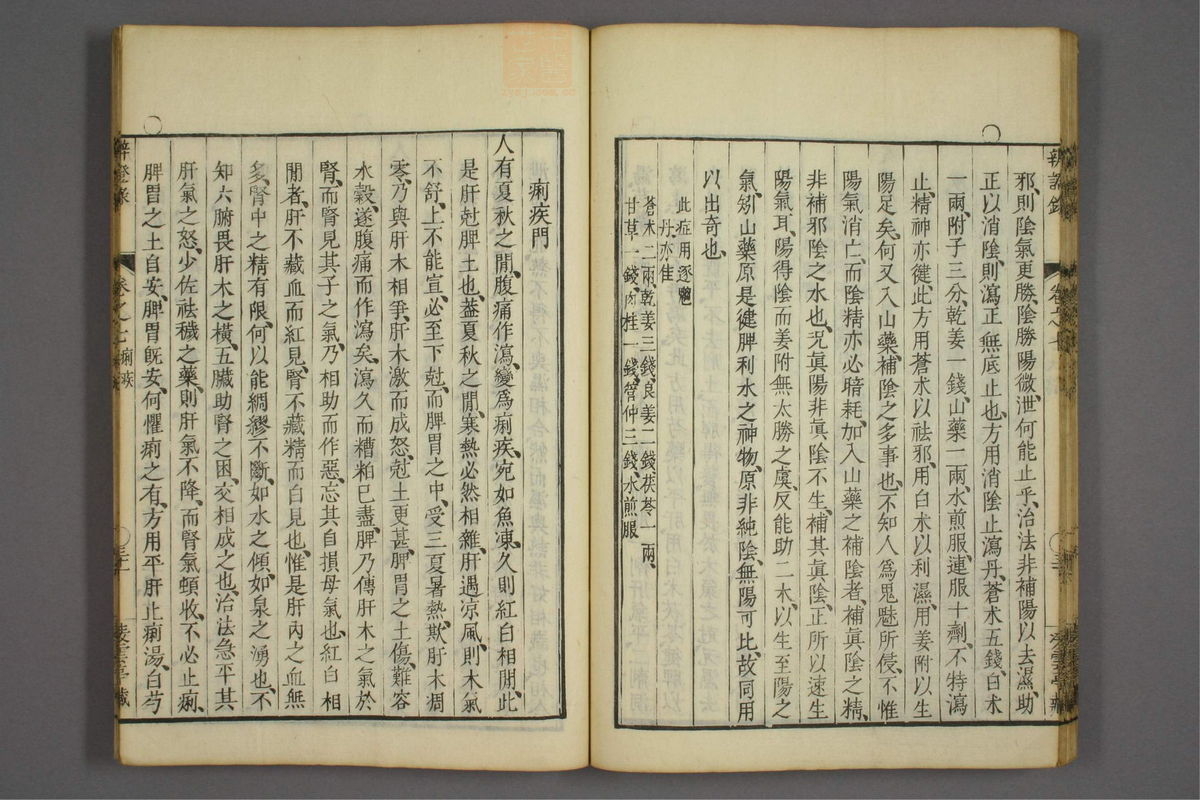 辨證錄 卷之七
邪、則陰氣更勝、陰勝陽微、泄何能止乎、治法非補陽以去濕、助
正以消陰、則瀉正無底止也、方用消陰止瀉丹、蒼朮五錢、白朮
一兩、附子三分、乾姜一錢、山藥一兩、水煎服、連服十劑、不特瀉
止、精神亦健、此方用蒼朮以祛邪、用白朮以利濕、用姜附以生
陽足矣、何又入山藥、補陰之多事也、不知人爲鬼魅所侵、不惟
陽氣消亡、而陰精亦必暗耗、加入山藥之補陰者、補眞陰之精、
非補邪陰之水也、況眞陽非眞陰不生、補其眞陰、正所以速生
陽氣耳、陽得陰而姜附無太勝之虞、反能助二朮、以生至陽之
氣、矧山藥原是健脾利水之神物、原非純陰、無陽可比、故同用
以出奇也、
此症用逐魑
丹、亦佳
蒼朮二兩、乾姜三錢、良姜二錢、茯苓一兩、
甘草一錢、肉桂一錢、管仲三錢、水煎服
痢疾門
人有夏秋之間、腹痛作瀉、變爲痢疾、宛如魚凍、久則紅白相間、此
是肝尅脾土也、葢夏秋之間、寒熱必然相雜、肝遇涼風、則木氣
不舒、上不能宣、必至下尅、而脾胃之中、受三夏暑熱、欺肝木凋
零、乃與肝木相爭、肝木激而成怒、尅土更甚、脾胃之土傷、難容
水穀、遂腹痛而作瀉矣、瀉久而糟粕已盡、脾乃傳肝木之氣於
腎、而腎見其子之氣、乃相助而作惡、忘其自損母氣也、紅白相
間者、肝不藏血而紅見、腎不藏精而白見也、惟是肝內之血無
多、腎中之精有限、何以能綢繆不斷、如水之傾、如泉之湧也、不
知六腑畏肝木之橫、五臟助腎之困、交相成之也、治法急平其
肝氣之怒、少佐祛穢之藥、則肝氣不降、而腎氣頓收、不必止痢、
脾胃之土自安、脾胃旣安、何懼痢之有、方用平肝止痢湯、白芍
辨證錄 卷之七 痢疾 淩雲亭藏